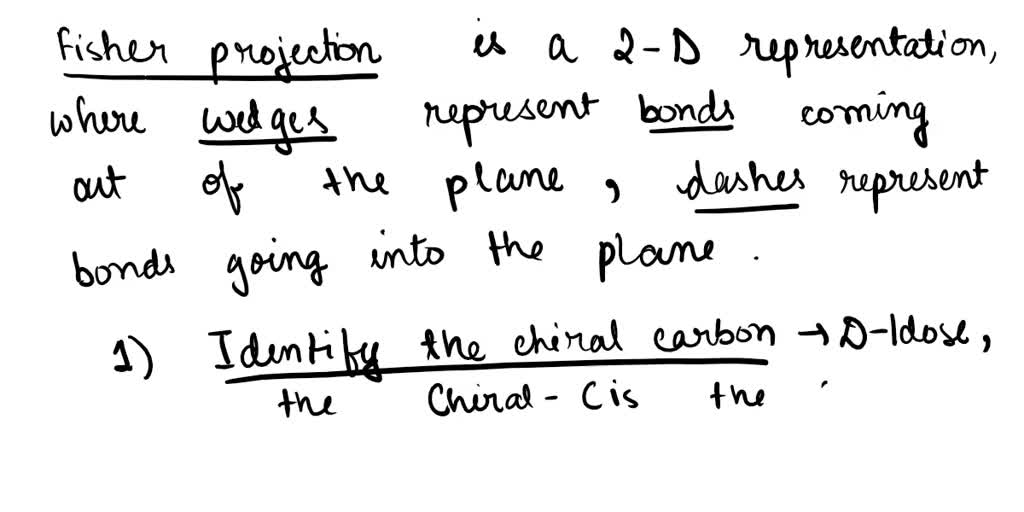 Fisher projection is a 2-D representation,
where wedges represent bonds coming
out of the plane, dashes represent
bonds going into the plane.
1) Identify the chiral carbon → D-Idose,
the Chiral-C is the